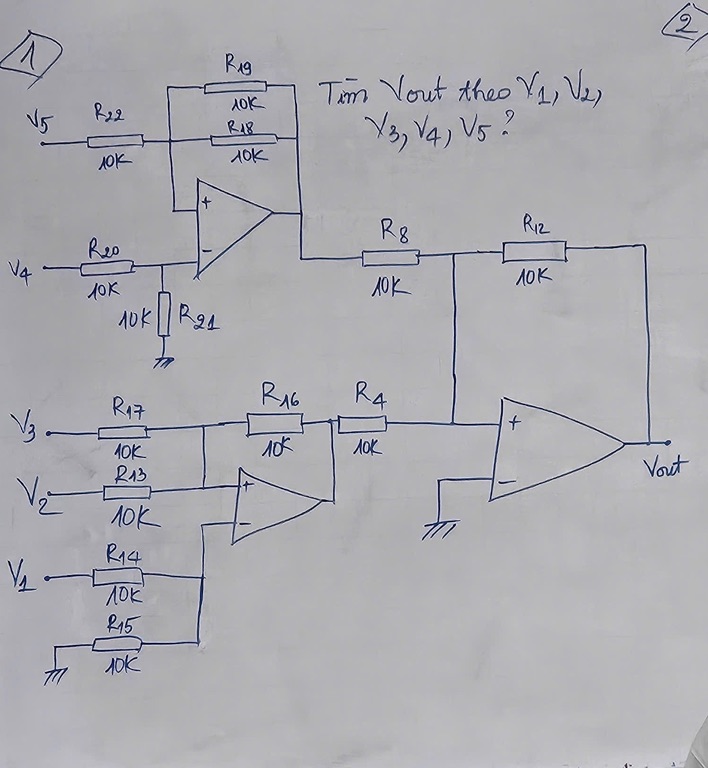 1
2
R19
10K
Tìm Vout theo V1, V2,
V3, V4, V5?
V5
R22
10K
R18
10K
+
-
V4
R20
10K
10K
R21
R8
10K
R12
10K
V3
R17
10K
R16
10K
R4
10K
V2
R13
10K
+
-
+
-
Vout
V1
R14
10K
R15
10K